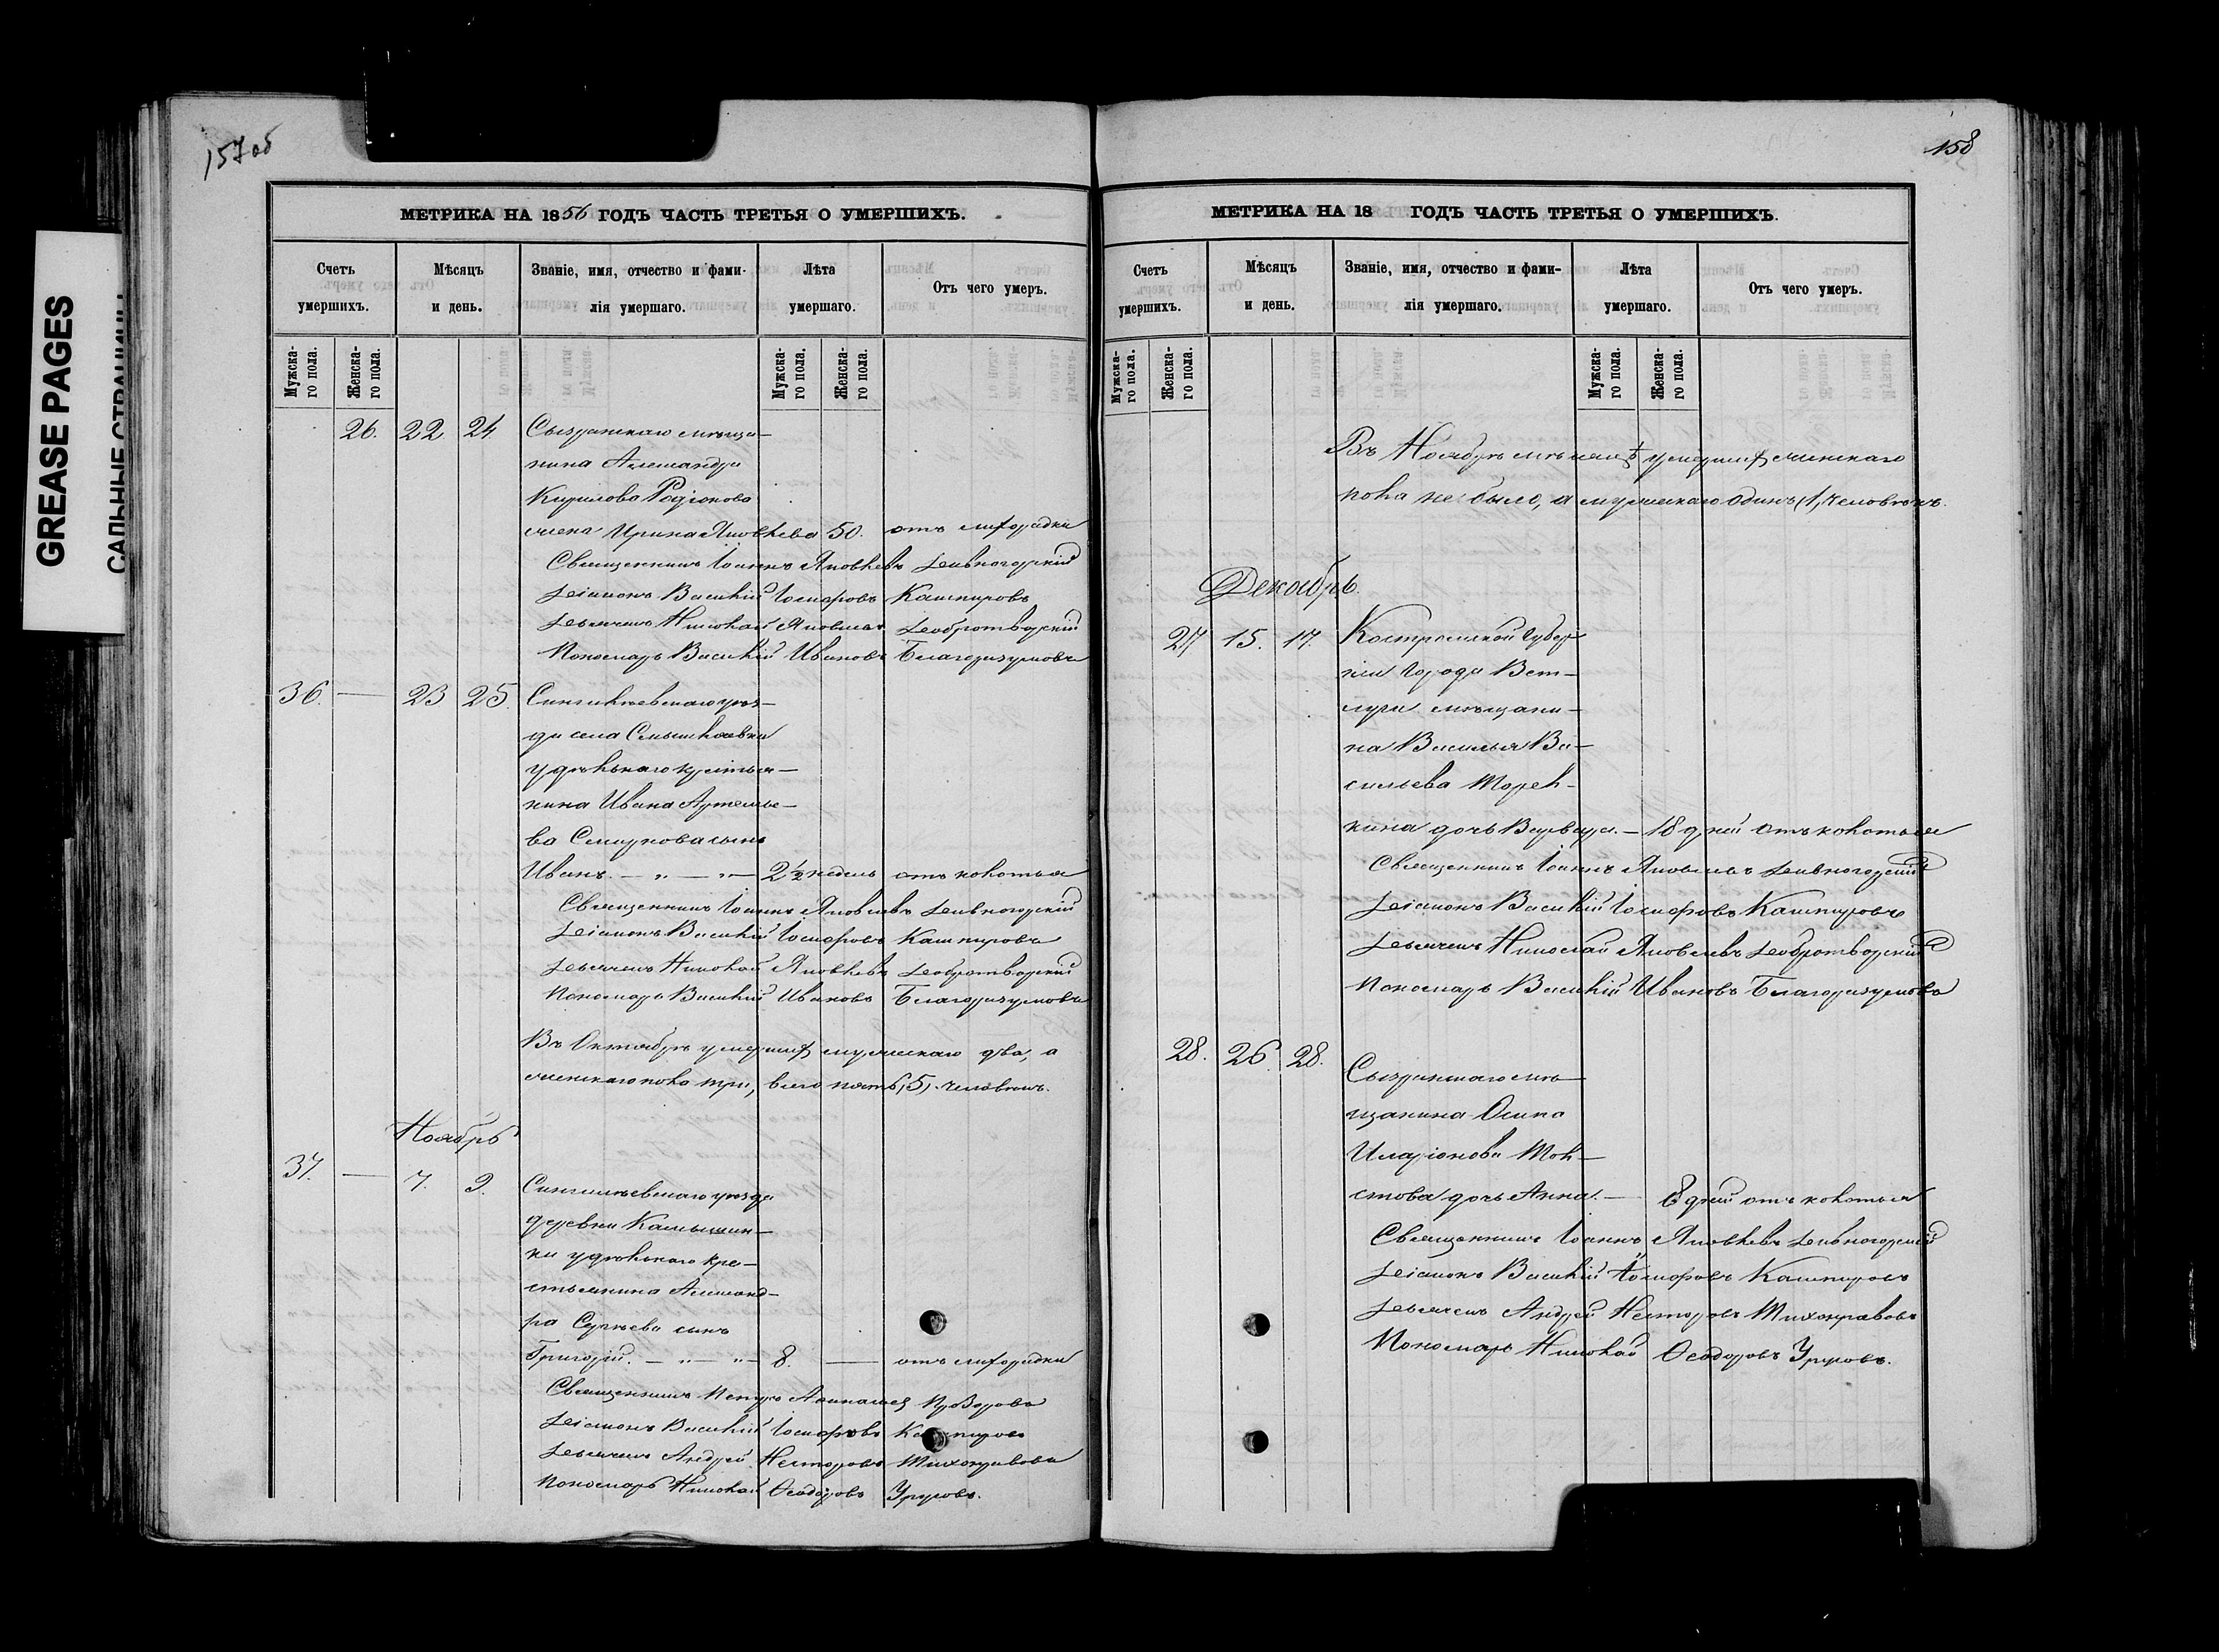 GREASE PAGES
САЛЬНЫЕ СТРАНИЦЫ
157 об
МЕТРИКА НА 1856 ГОДЪ ЧАСТЬ ТРЕТЬЯ О УМЕРШИХЪ.
Счетъ умершихъ.
Мѣсяцъ и день.
Званіе, имя, отчество и фами-
лія умершаго.
Лѣта умершаго.
Отъ чего умеръ.
Мужска-
го пола.
Женска-
го пола.
Мужска-
го пола.
Женска-
го пола.
26. 22 24. Сызранскаго мѣща-
нина Александра
Кирилова Родіонова
жена Ирина Яковлева 50. отъ лихорадки
Священникъ Іоаннъ Яковлевъ Дивногорскій
Діаконъ Василій Іосифовъ Кашпировъ
Дьячекъ Николай Яковлевъ Добротворскій
Пономарь Василій Ивановъ Благоразумовъ
36. — 23 25. Сингилѣевскаго уѣз-
да села
удѣльнаго крестья-
нина Ивана Артемье-
ва сынъ
Иванъ. — „ — „ — 2½ недель отъ колотья
Священникъ Іоаннъ Яковлевъ Дивногорскій
Діаконъ Василій Іосифовъ Кашпировъ
Дьячекъ Николай Яковлевъ Добротворскій
Пономарь Василій Ивановъ Благоразумовъ
Въ Октябрѣ умершихъ мужескаго два, а
женскаго пола три, всего пять (5) человѣкъ.
Ноябрь
37. — 7. 9. Сингилѣевскаго уѣзда
деревни Камышин-
ки удѣльнаго кре-
стьянина Александ-
ра Сергѣева сынъ
Григорій. — „ — „ — 8. — отъ лихорадки
Священникъ Петръ
Діаконъ Василій Іосифовъ Кашпировъ
Дьячекъ Андрей Несторовъ Тихонравовъ
Пономарь Николай Ѳеодоровъ
158
МЕТРИКА НА 18 ГОДЪ ЧАСТЬ ТРЕТЬЯ О УМЕРШИХЪ.
Счетъ умершихъ.
Мѣсяцъ и день.
Званіе, имя, отчество и фами-
лія умершаго.
Лѣта умершаго.
Отъ чего умеръ.
Мужска-
го пола.
Женска-
го пола.
Мужска-
го пола.
Женска-
го пола.
Въ Ноябрѣ мѣсяцѣ умершихъ женскаго
пола не было, а мужескаго одинъ (1) человѣкъ.
Декабрь.
27 15. 17. Костромской Губер
ніи города Вет-
луги мѣщани-
на Василья Ва-
сильева Торел-
кина дочь Варвара. — 18 дней отъ колотья
Священникъ Іоаннъ Яковлевъ Дивногорскій
Діаконъ Василій Іосифовъ Кашпировъ
Дьячекъ Николай Яковлевъ Добротворскій
Пономарь Василій Ивановъ Благоразумовъ
28. 26. 28.
Сызранскаго мѣ-
щанина Осипа
Иларіонова Тол-
стова дочь Анна. — 8 дней отъ колотья
Священникъ Іоаннъ Яковлевъ Дивногорскій
Діаконъ Василій Іосифовъ Кашпировъ
Дьячекъ Андрей Несторовъ Тихонравовъ
Пономарь Николай Ѳеодоровъ